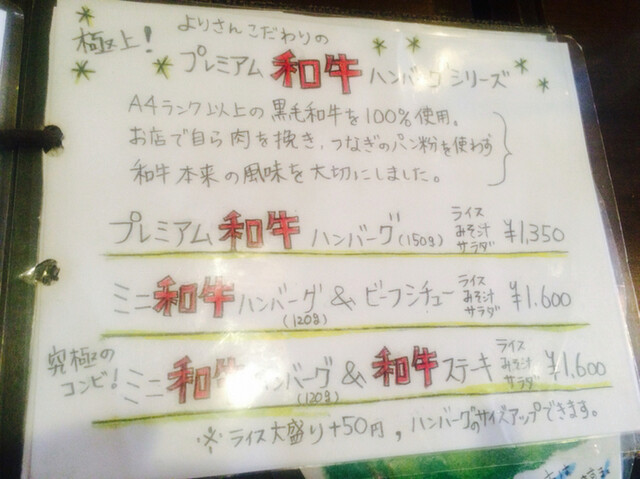 極上!
よりさんこだわりの
プレミアム 和牛 ハンバーグシリーズ
A4ランク以上の黒毛和牛を100%使用。
お店で自ら肉を挽き、つなぎのパン粉を使わず
和牛本来の風味を大切にしました。
プレミアム 和牛 ハンバーグ(150g) ライス みそ汁 サラダ ¥1,350
ミニ和牛ハンバーグ(120g) & ビーフシチュー ライス みそ汁 サラダ ¥1.600
究極のコンビ!
ミニ和牛ハンバーグ(120g) & 和牛ステーキ ライス みそ汁 サラダ ¥1,600
※ ライス大盛り+50円, ハンバーグのサイズアップできます。